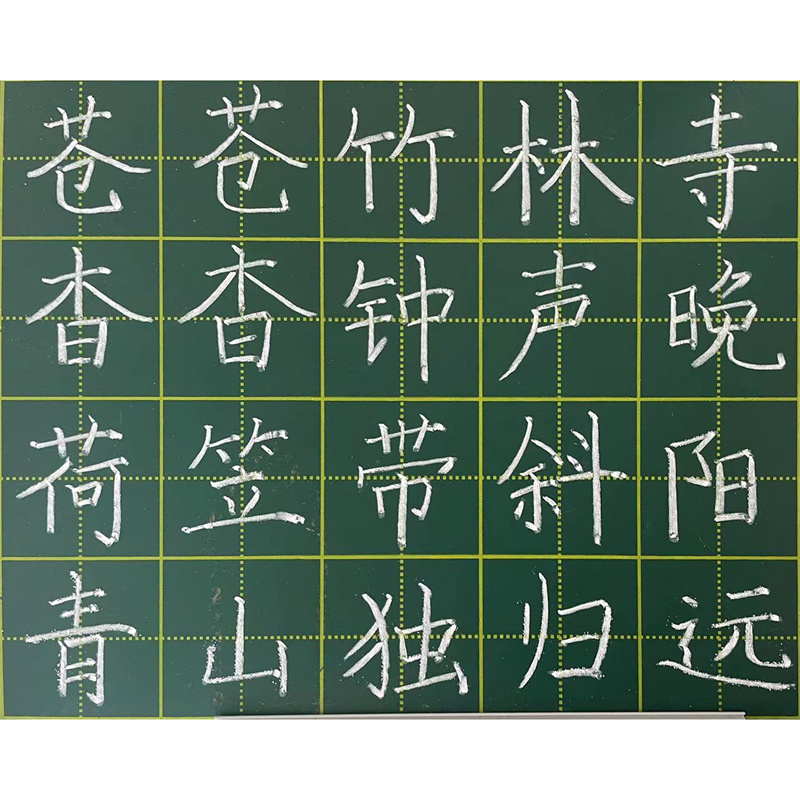 苍苍竹林寺
杳杳钟声晚
荷笠带斜阳
青山独归远